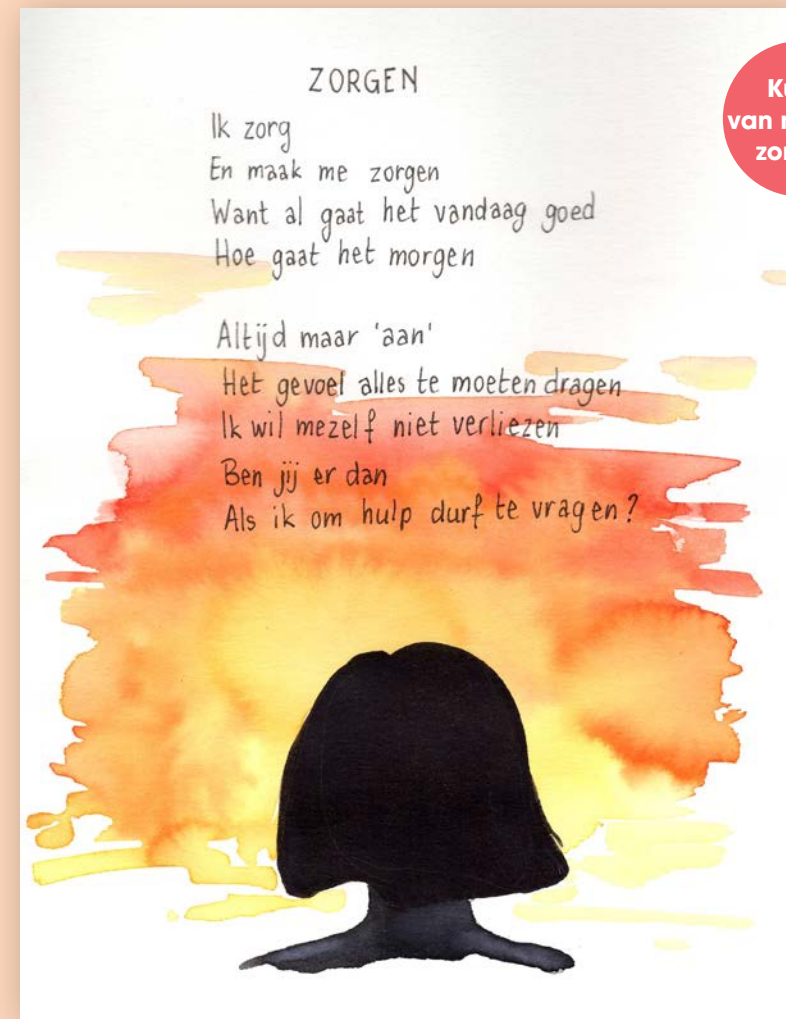 ZORGEN
Ik zorg
En maak me zorgen
Want al gaat het vandaag goed
Hoe gaat het morgen
Altijd maar 'aan'
Het gevoel alles te moeten dragen
Ik wil mezelf niet verliezen
Ben jij er dan
Als ik om hulp durf te vragen?
van